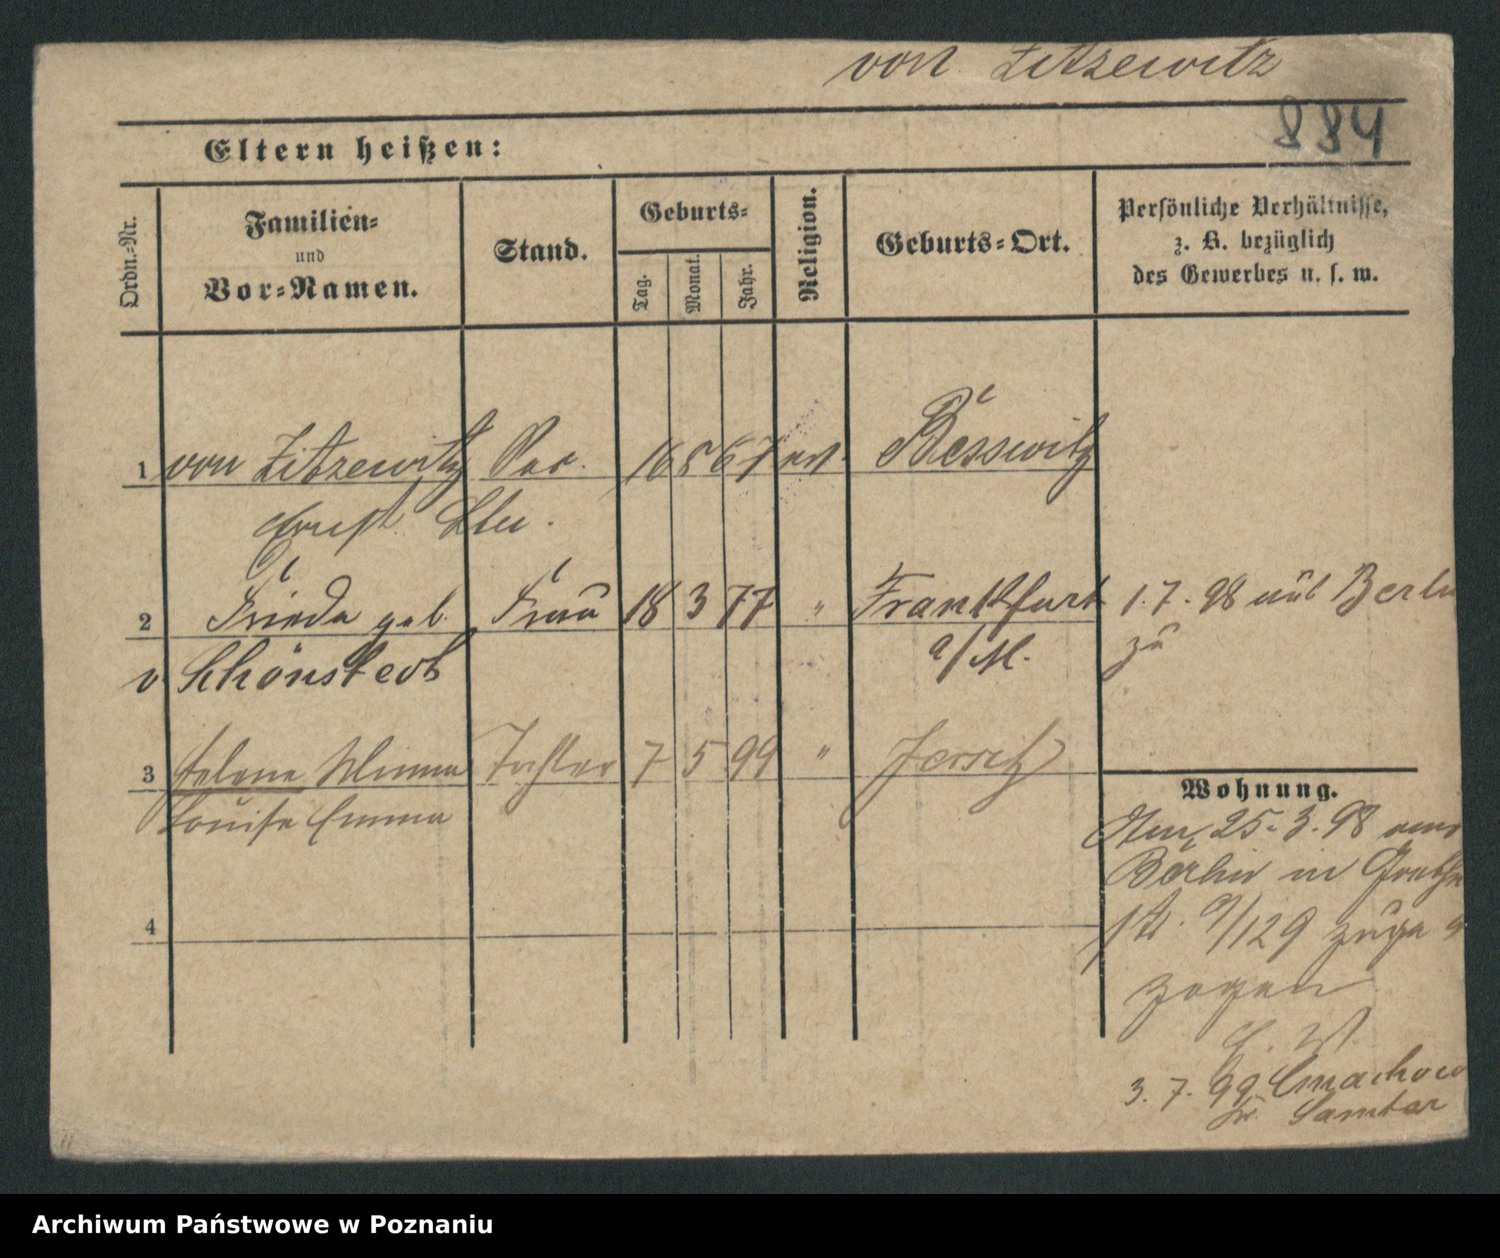 von Zitzewitz
884
Eltern heißen:
Ordn.-Nr.
Familien-
und
Vor-Namen.
Stand.
Geburts-
Tag.
Monat.
Jahr.
Religion.
Geburts-Ort.
Persönliche Verhältnisse,
z. B. bezüglich
des Gewerbes u. s. w.
1 von Zitzewitz 16 8 67 ev. Besswitz
Ernst
2 Frieda geb. Frau 18 3 77 " Frankfurt 1.7.98 aus Berlin
v Schönstedt a/M. zu
3 Helene Minna Tochter 7 5 99 " Jersitz
Louise Emma
Wohnung.
25.3.98
Berlin in
9/129
zogen
4
3.7.99
Kr. Samter
Archiwum Państwowe w Poznaniu